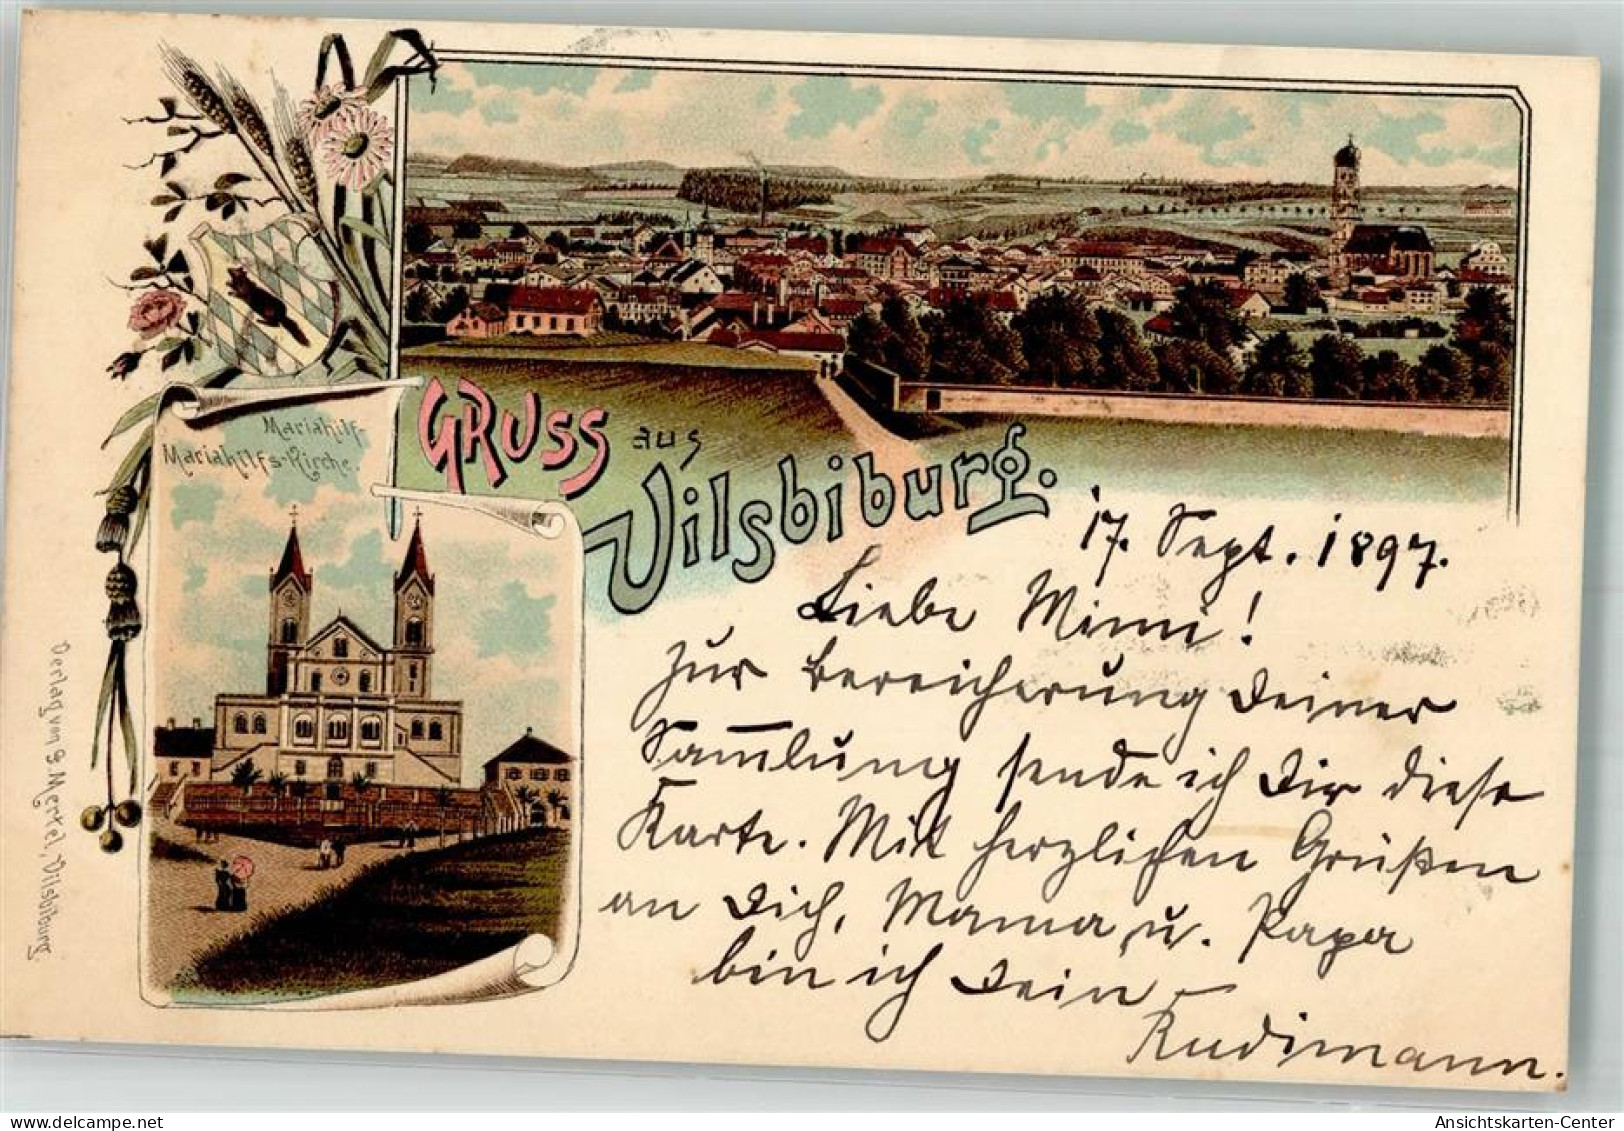 Mariahilf-
Mariahilfs-Kirche.
GRUSS aus
Vilsbiburg.
17. Sept. 1897.
Liebe Mimi!
Zur Bereicherung Deiner
Sam̅lung sende ich Dir diese
Karte. Mit herzlichen Grüßen
an Dich, Mama u. Papa
bin ich Dein
Rudimann.
Verlag von G. Mertel, Vilsbiburg.
Ansichtskarten-Center